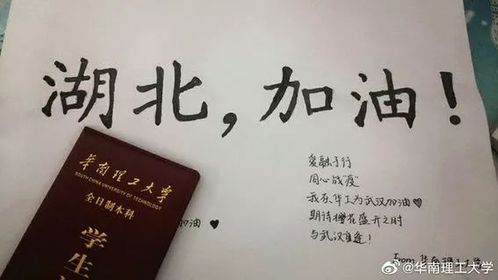 湖北,加油!
华南理工大学
SOUTH CHINA UNIVERSITY OF TECHNOLOGY
全日制本科
学生
加油♥
爱融于行
同心战"疫"
我在华工为武汉加油♥
期待樱花盛开之时
与武汉重逢!
From
@华南理工大学